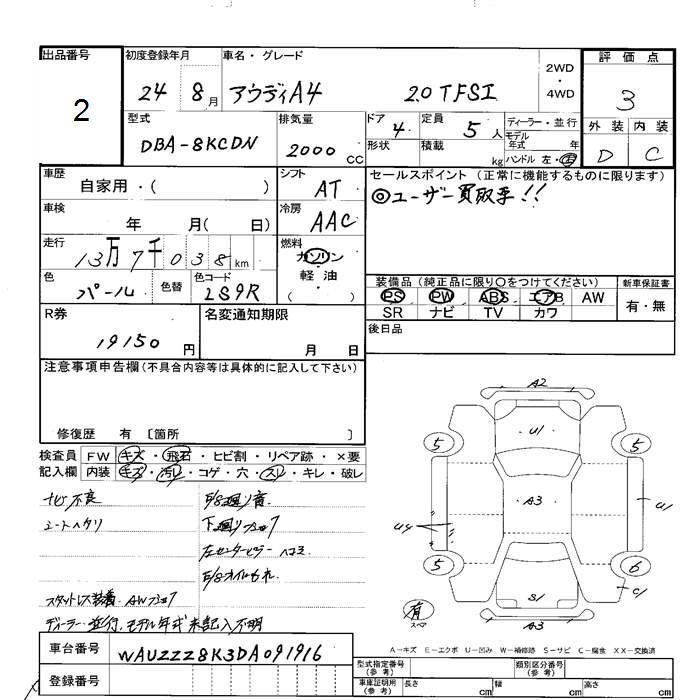 出品番号
2
初度登録年月
24 8月
車名・グレード
アウディA4 2.0 TFSI
2WD
・
4WD
評価点
3
外装 内装
D C
型式
DBA-8KCDN
排気量
2000 CC
ドア
4
形状
定員
5 人
積載
kg
ディーラー・並行
モデル年式 年
ハンドル 左・右
車歴
自家用・( )
シフト
AT
車検
年 月( 日)
冷房
AAC
走行
13万7千038km
燃料
ガソリン
・
軽油
( )
色
パール
色替
色コード
2S9R
セールスポイント(正常に機能するものに限ります)
◎ユーザー買取車!!
装備品(純正品に限り○をつけてください)
PS PW ABS エアB AW
SR ナビ TV カワ
新車保証書
有・無
後日品
R券
19150円
名変通知期限
月 日
注意事項申告欄(不具合内容等は具体的に記入して下さい)
修復歴 有 〔箇所 〕
検査員記入欄
FW キズ・飛石・ヒビ割・リペア跡・×要
内装 キズ・汚れ・コゲ・穴・スレ・キレ・破レ
ナビ不良
シートヘタリ
E/G廻り音
下廻りサビ
左センターピラー ヘコミ
E/Gオイルもれ
スタットレス装着 AW
ディーラー・並行、モデル年式未記入不明
A2
U1
A3
S1
A3
U4
U1
C1
5
5
5
6
有
スペア
A-キズ E-エクボ U-凹み W-補修跡 S-サビ C-腐食 XX-交換済
車台番号
WAUZZZ8K3DA091916
登録番号
型式指定番号(参考)
類別区分番号(参考)
車庫証明用(参考)
長さ cm
幅 cm
高さ cm